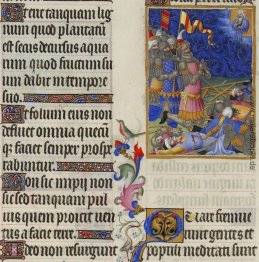 Et erit tanquam lig
num quod plantatū
est secus decursus aqua
rum quod fructum su
um dabit in tempore
suo.
Et folium eius non
defluet omnia quecū
q; faciet semper prospe
rabuntur.
Non sic impij non
sic sed tanquam pul
uis quem proicit uen
tus a facie terre.
Ideo non resurgunt
Quare fremue
runt gentes et
populi meditati sunt